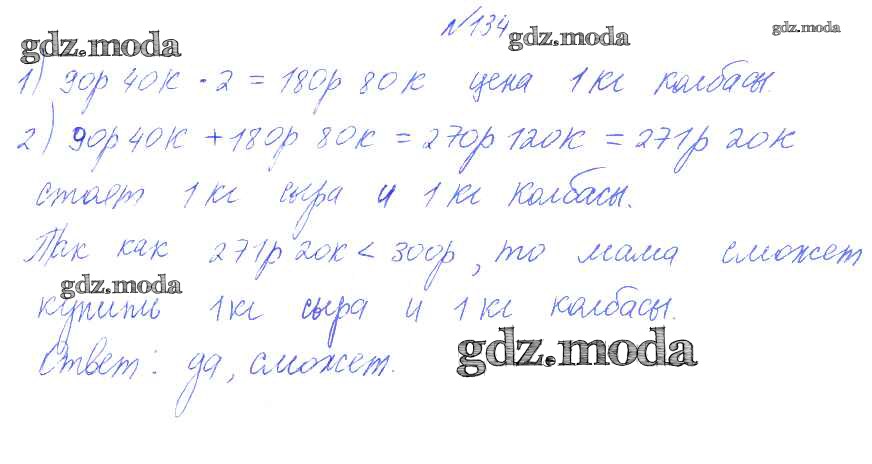 №134
gdz.moda gdz.moda gdz.moda
1) 90р 40к · 2 = 180р 80к цена 1 кг колбасы.
2) 90р 40к + 180р 80к = 270р 120к = 271р 20к
стоет 1 кг сыра и 1 кг колбасы.
Так как 271р 20к < 300р, то мама сможет
gdz.moda
купить 1кг сыра и 1 кг колбасы.
Ответ: да, сможет.
gdz.moda